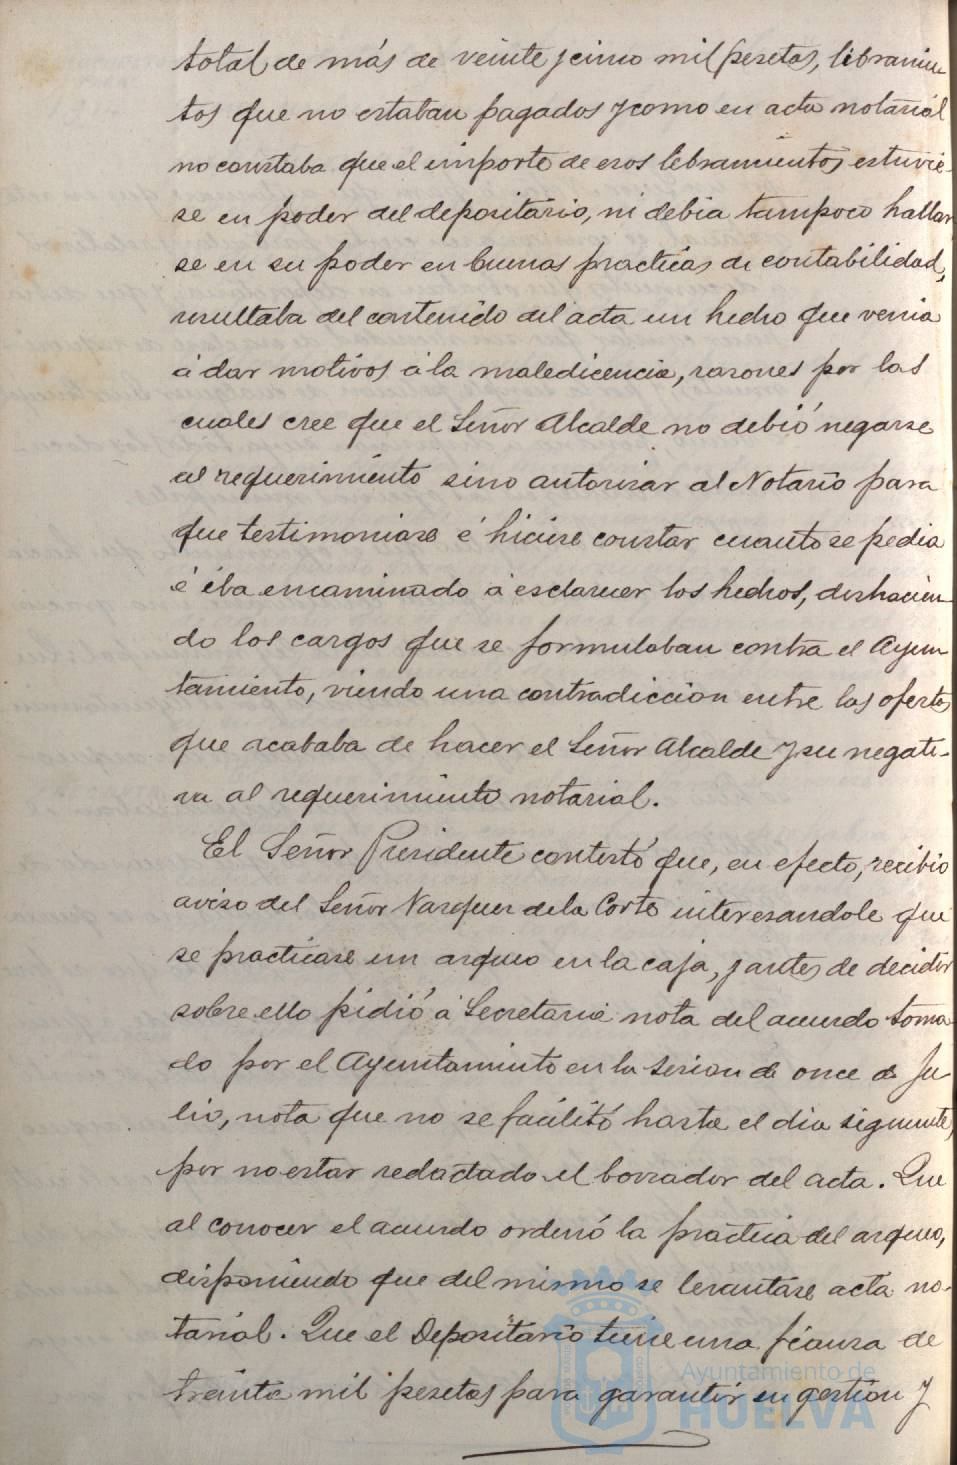 total de más de veinte y cinco mil pesetas, libramien
tos que no estaban pagados y como en acta notarial
no constaba que el importe de esos libramientos estuvie-
se en poder del depositario, ni debia tampoco hallar
se en su poder en buenas practicas de contabilidad,
resultaba del contenido del acta un hecho que venia
á dar motivos á la maledicencia, razones por las
cuales cree que el Señor Alcalde no debió negarse
al requerimiento sino autorizar al Notario para
que testimoniase é hiciese constar cuanto se pedia
é iba encaminado á esclarecer los hechos, deshacien-
do los cargos que se formulaban contra el Ayun
tamiento, viendo una contradiccion entre las ofertas
que acababa de hacer el Señor Alcalde y su negati-
va al requerimiento notarial.
El Señor Presidente contestó que, en efecto, recibio
aviso del Señor Vazquez de la Corte interesandole que
se practicase un arqueo en la caja, y antes de decidir
sobre ello pidió á Secretaria nota del acuerdo toma
do por el Ayuntamiento en la sesion de once de Ju
lio, nota que no se facilitó hasta el dia siguiente,
por no estar redactado el borrador del acta. Que
al conocer el acuerdo ordenó la practica del arqueo,
disponiendo que del mismo se levantase acta no-
tarial. Que el Depositario tiene una fianza de
treinta mil pesetas para garantir su gestion y
Ayuntamiento de
HUELVA